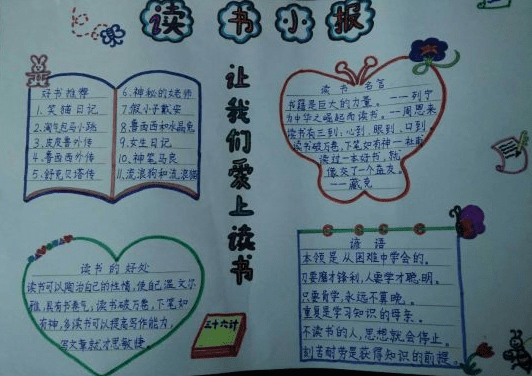 读书小报
好书推荐
1.笑猫日记
2.淘气包马小跳
3.皮皮鲁外传
4.鲁西西外传
5.舒克贝塔传
6.神秘的女老师
7.假小子戴安
8.鲁西西和水晶兔
9.女生日记
10.神笔马良
11.流浪狗和流浪猫
让我们爱上读书
读书名言
书籍是巨大的力量。——列宁
为中华之崛起而读书。——周恩来
读书有三到,心到、眼到、口到
读书破万卷,下笔如有神——杜甫
读过一本好书,就
像交了一个益友。
——臧克
读书的好处
读书可以陶冶自己的性情,使自己温文尔
雅,具有书卷气;读书破万卷,下笔如
有神,多读书可以提高写作能力,
写文章就才思敏捷。
三十六计
谚语
本领是从困难中学会的。
刀要磨才锋利,人要学才聪明。
只要肯学,永远不算晚。
重复是学习知识的母亲。
不读书的人,思想就会停止。
刻苦耐劳是获得知识的前提。